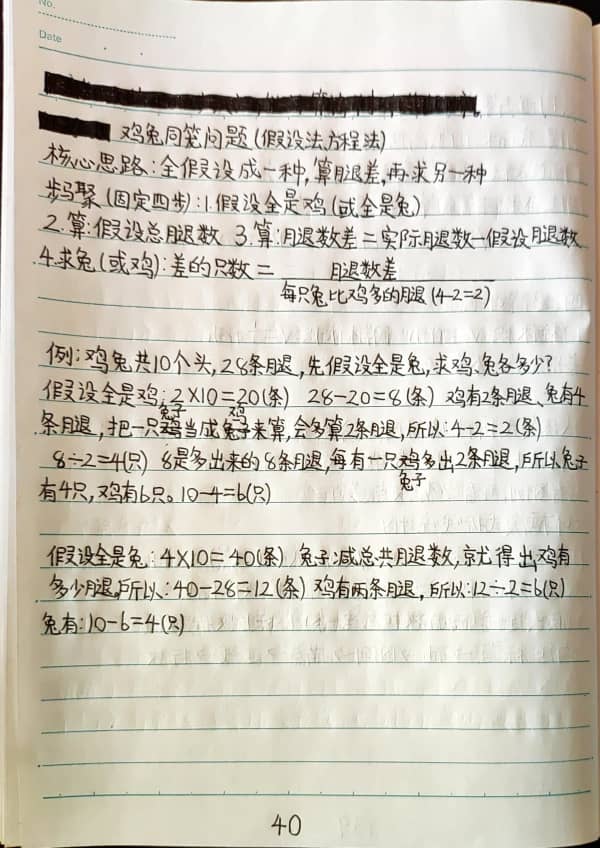 No.
Date
鸡兔同笼问题(假设法,方程法)
核心思路:全假设成一种,算腿差,再求另一种
步骤(固定四步):1.假设全是鸡(或全是兔)
2.算:假设总腿数 3.算:腿数差=实际腿数-假设腿数
4.求兔(或鸡):差的只数= 腿数差
每只兔比鸡多的腿(4-2=2)
例:鸡兔共10个头,28条腿,先假设全是兔,求鸡、兔各多少?
假设全是鸡:2×10=20(条) 28-20=8(条) 鸡有2条腿、兔有4
兔子 鸡
条腿,把一只鸡当成兔子来算,会多算2条腿,所以:4-2=2(条)
8÷2=4(只) 8是多出来的8条腿,每有一只鸡多出2条腿,所以兔子
兔子
有4只,鸡有6只。10-4=6(只)
假设全是兔:4×10=40(条) 兔子减总共腿数,就得出,鸡有
多少腿,所以:40-28=12(条) 鸡有两条腿,所以:12÷2=6(只)
兔有:10-6=4(只)
40